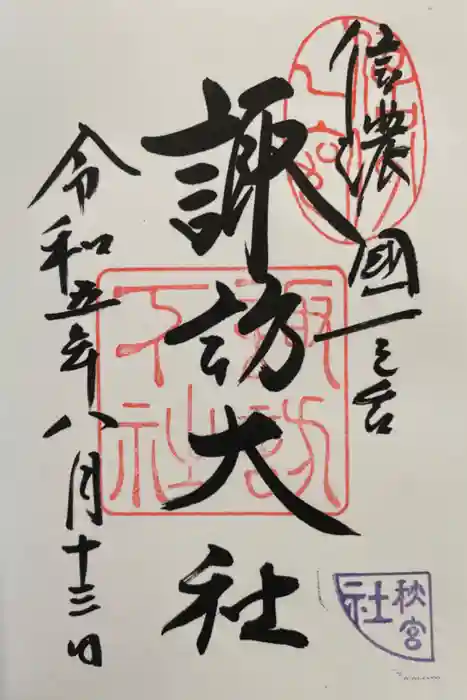 信濃國一之宮
諏訪大社
令和五年八月十三日
諏訪下社
秋宮
社